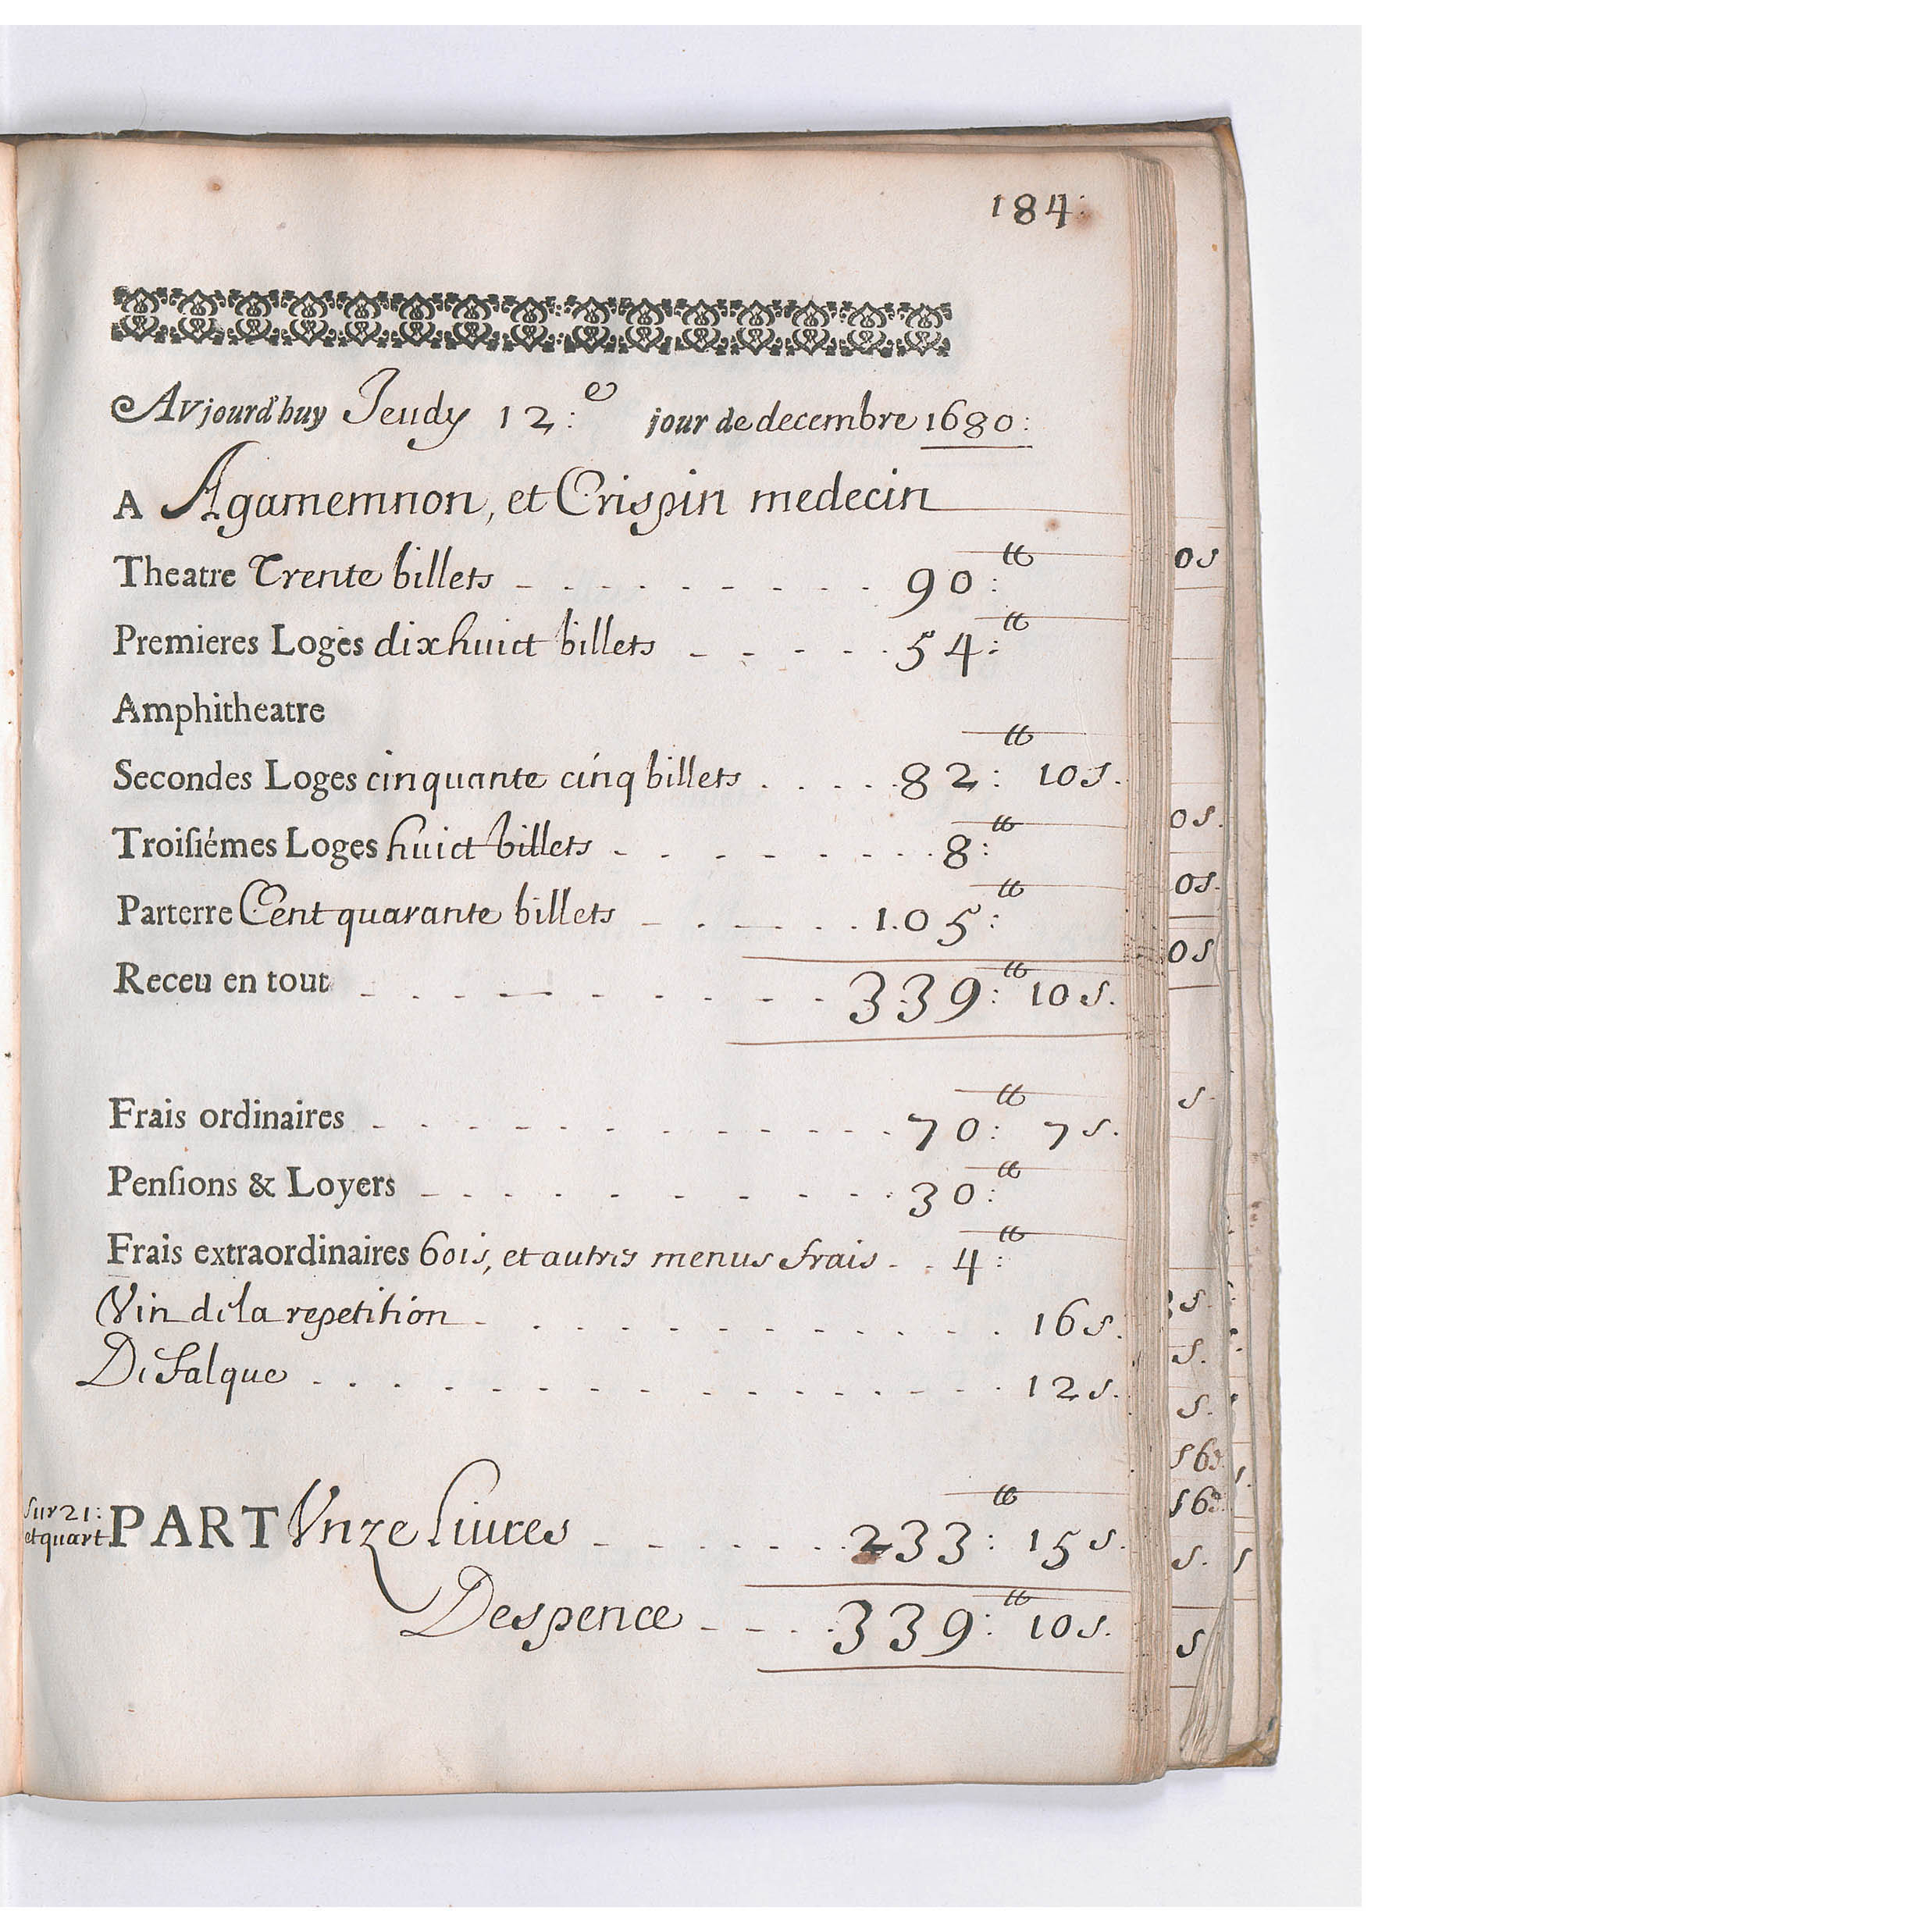 184:
Avjourd'huy Jeudy 12:e jour de decembre 1680:
A Agamemnon, et Crispin medecin
Theatre Trente billets - - - - - - - - 90:tt
Premieres Loges dixhuict billets - - - - - 54:tt
Amphitheatre
Secondes Loges cinquante cinq billets . . . . . 82:tt 10s.
Troisiémes Loges huict billets - - - - - - - - 8:tt
Parterre Cent quarante billets - - - - - - 105:tt
Receu en tout - - - - - - - - - 339:tt 10s.
Frais ordinaires - - - - - - - - - - 70:tt 7s.
Pensions & Loyers - - - - - - - - - 30:tt
Frais extraordinaires bois, et autres menus frais - - 4:tt
Vin de la repetition - - - - - - - - - - 16s.
Defalque - - - - - - - - - - - - 12s.
Sur 21:
et quart PART Vnze Liures - - - - - - 233:tt 15s.
Despence - - - - 339:tt 10s.